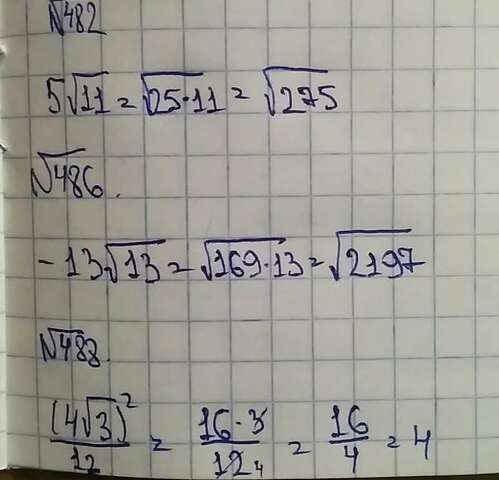 №482
5√11 = √25·11 = √275
№486.
-13√13 = √169·13 = √2197
№488.
(4√3)²/12 = 16·3/12 4 = 16/4 = 4